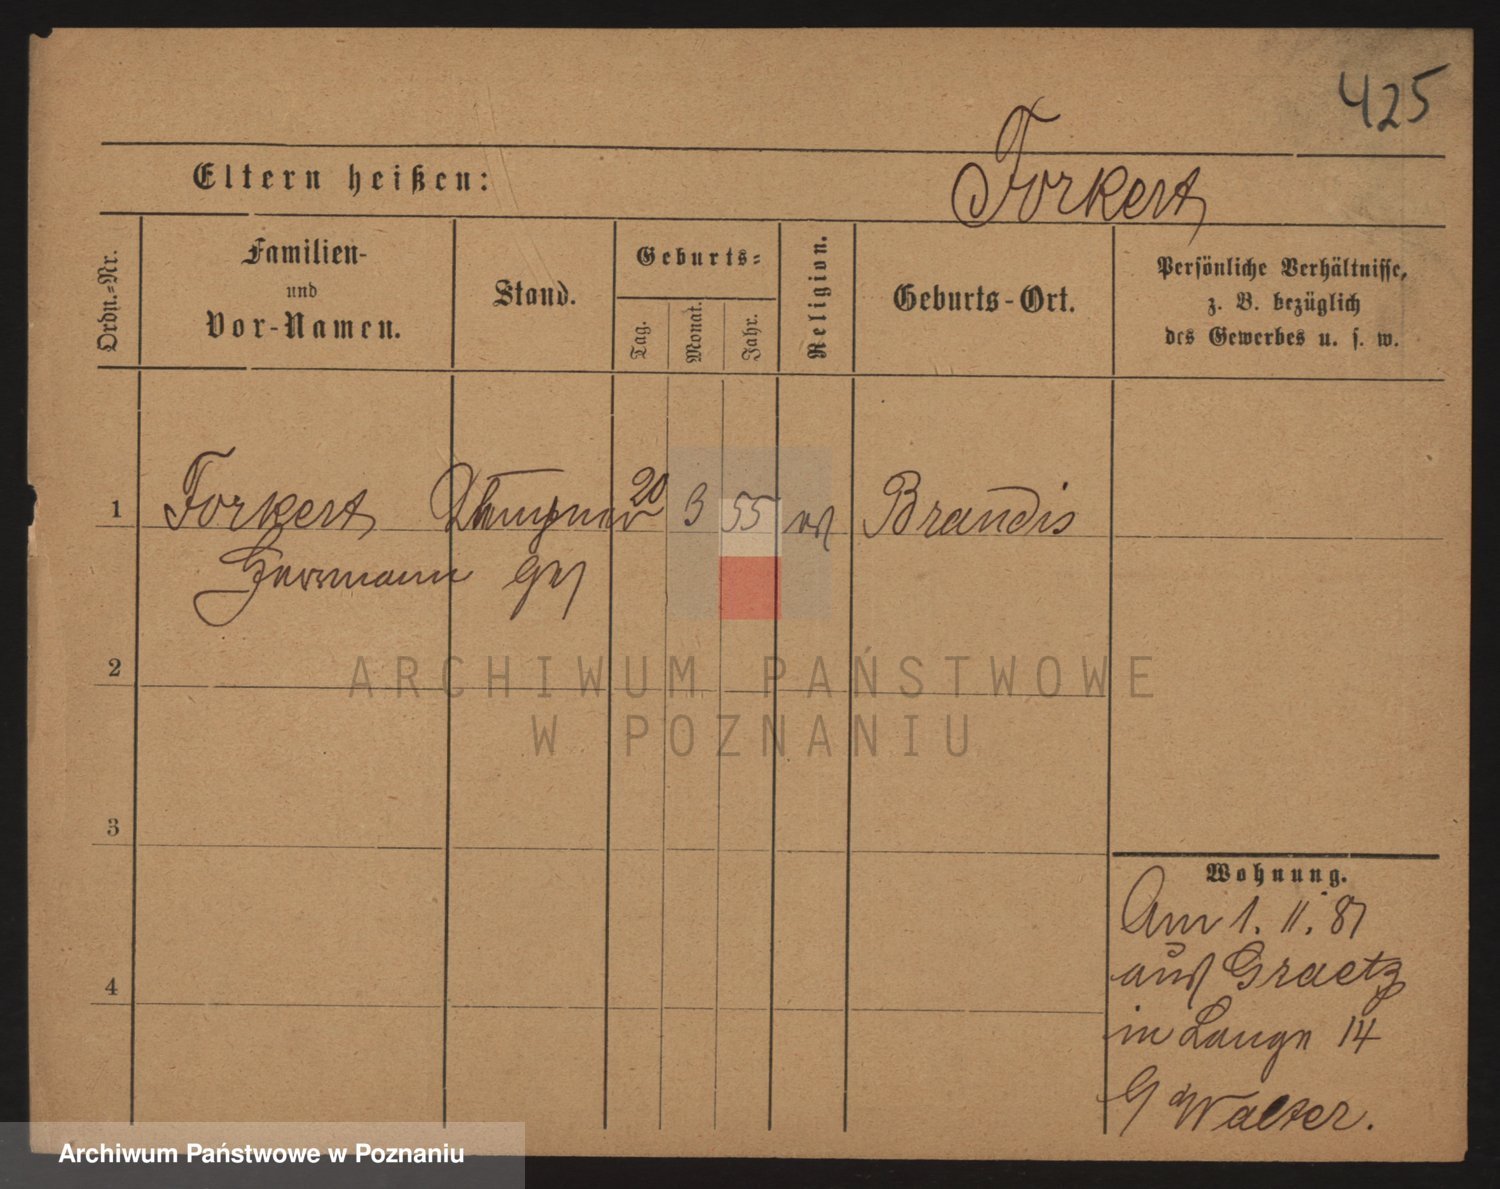 425
Eltern heißen:
Forkert
Ordn.-Nr.
Familien-
und
Vor-Namen.
Stand.
Geburts-
Tag.
Monat.
Jahr.
Religion.
Geburts-Ort.
Persönliche Verhältnisse,
z. B. bezüglich
des Gewerbes u. s. w.
1 Forkert Klempner 20 3 55 ev Brandis
Herrmann Ges
2
ARCHIWUM PAŃSTWOWE
W POZNANIU
3
4
Wohnung.
Am 1. 11. 81
aus Graetz
in Lange 14
Walter.
Archiwum Państwowe w Poznaniu